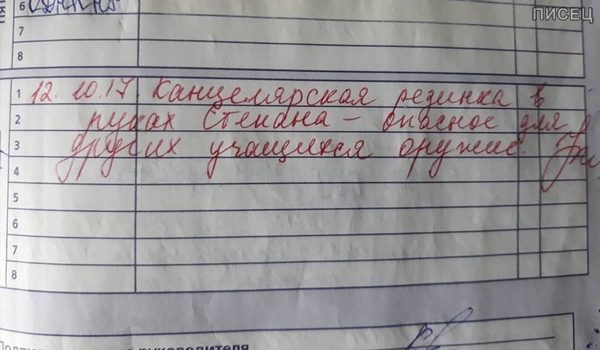 ПИСЕЦ
6
7
8
1 12.10.17 Канцелярская резинка в
2 руках Степана – опасное для
3 других учащихся оружие.
4
5
6
7
8